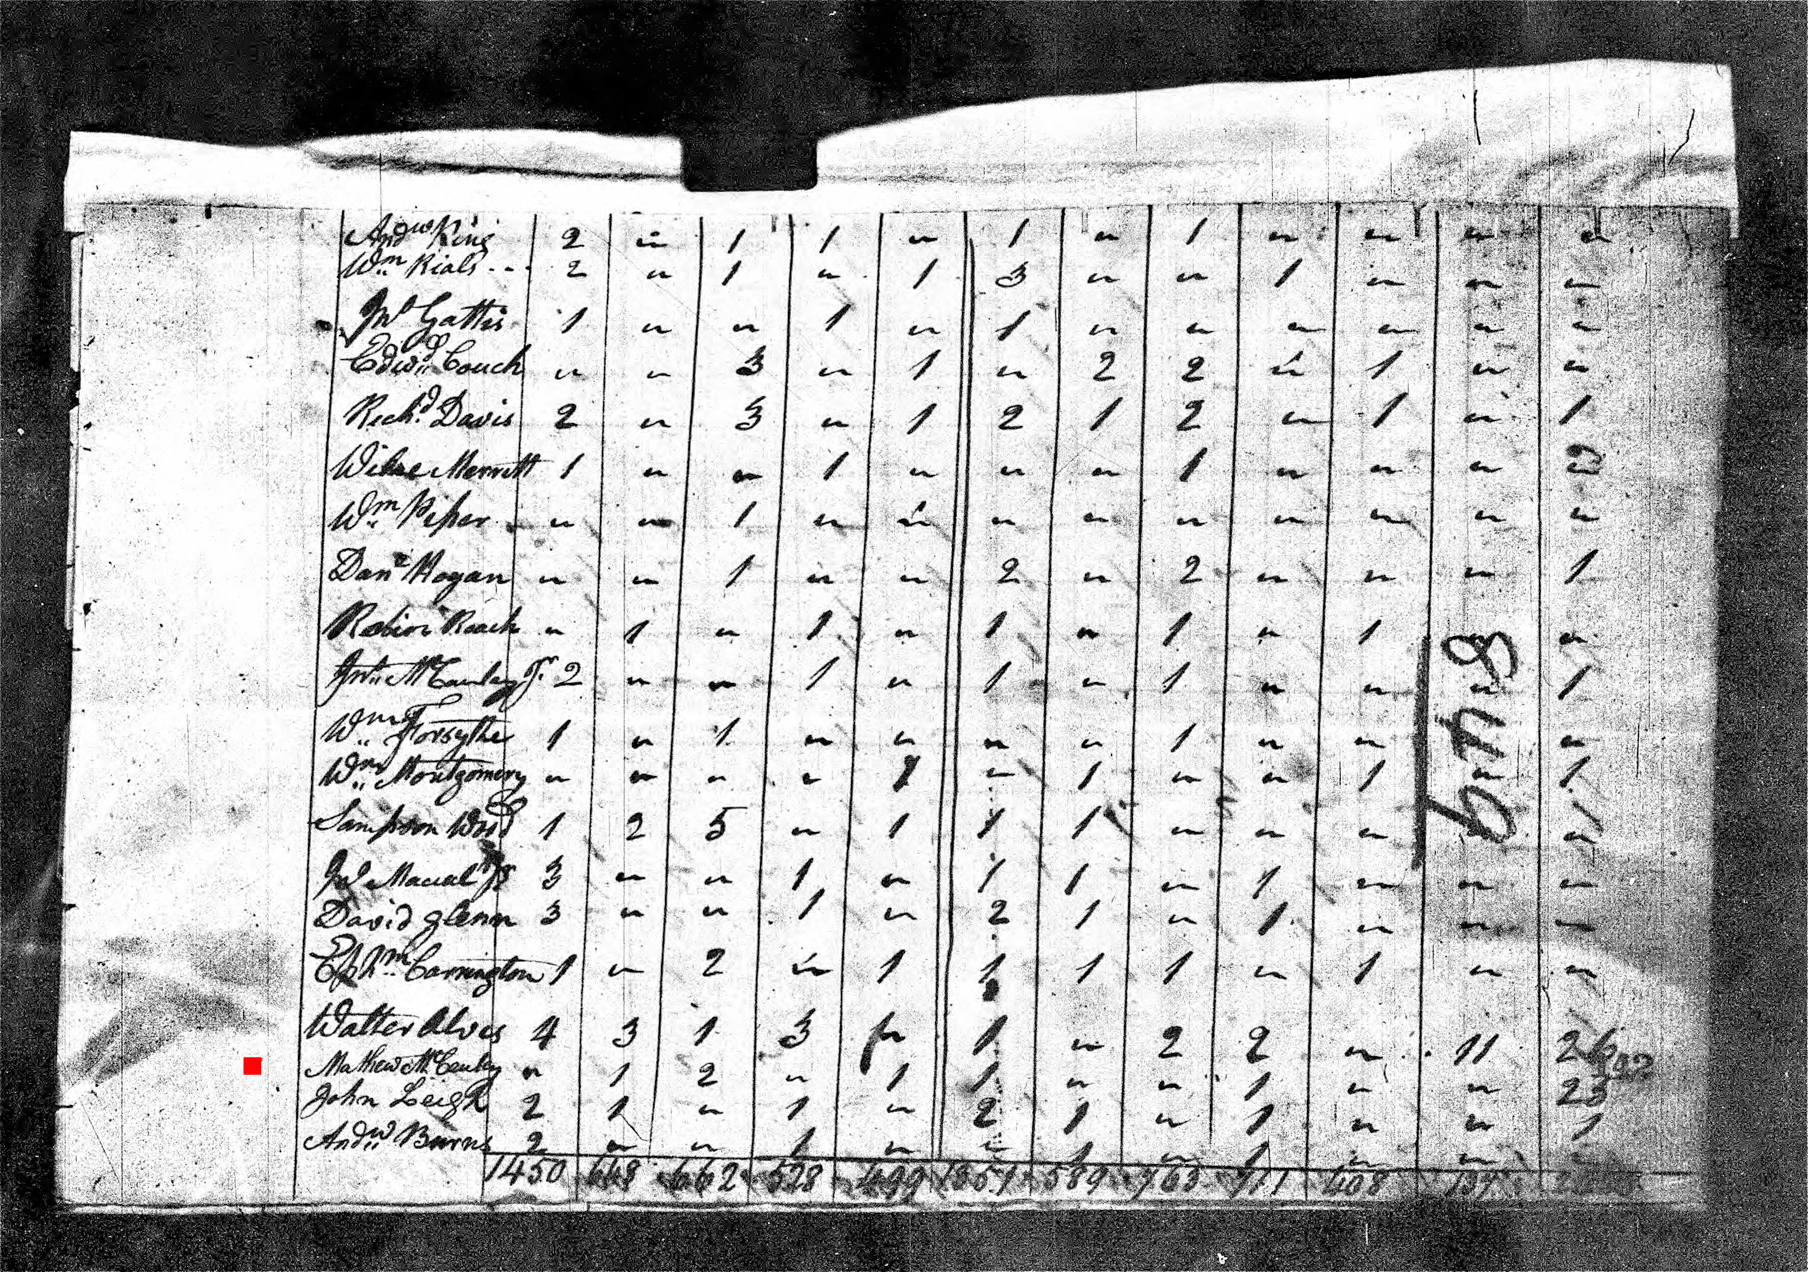 Andw King 2 " 1 1 " 1 " 1 " " " "
Wm Rials... 2 " 1 " 1 3 " " 1 " " "
Jno Gattis 1 " " 1 " 1 " " " " " "
Edwd Couch " " 3 " 1 " 2 2 " 1 " "
Richd Davis 2 " 3 " 1 2 1 2 " 1 " 1
Merritt 1 " " 1 " " " 1 " " "
Wm Piper " " 1 " " " " " " " " "
Danl Hogan " " 1 " " 2 " 2 " " " 1
Roach " 1 " 1 " 1 " 1 " 1 "
Jno McCauley Jr 2 " " 1 " 1 " 1 " " " 1
Wm Forsythe 1 " 1 " " " " 1 " " "
Wm Montgomery " " " " 1 " 1 " " 1 " 1
Sampson Wood 1 2 5 " 1 1 1 " " " " "
Jno Jr 3 " " 1 " 1 1 " 1 " " "
David Glenn 3 " " 1 " 2 1 " 1 " " "
Ephm Carrington 1 " 2 " 1 1 1 1 " 1 " "
Walter Alves 4 3 1 3 " 1 " 2 2 " 11 26
Mathew McCauley " 1 2 " 1 1 " " 1 " " 23
John Leigh 2 1 " 1 " 2 1 " 1 " " 1
Andw Burns 2 " " 1 " " 1 " 1 " " "
1450 648 662 528 499 1351 589 763 711 408 137